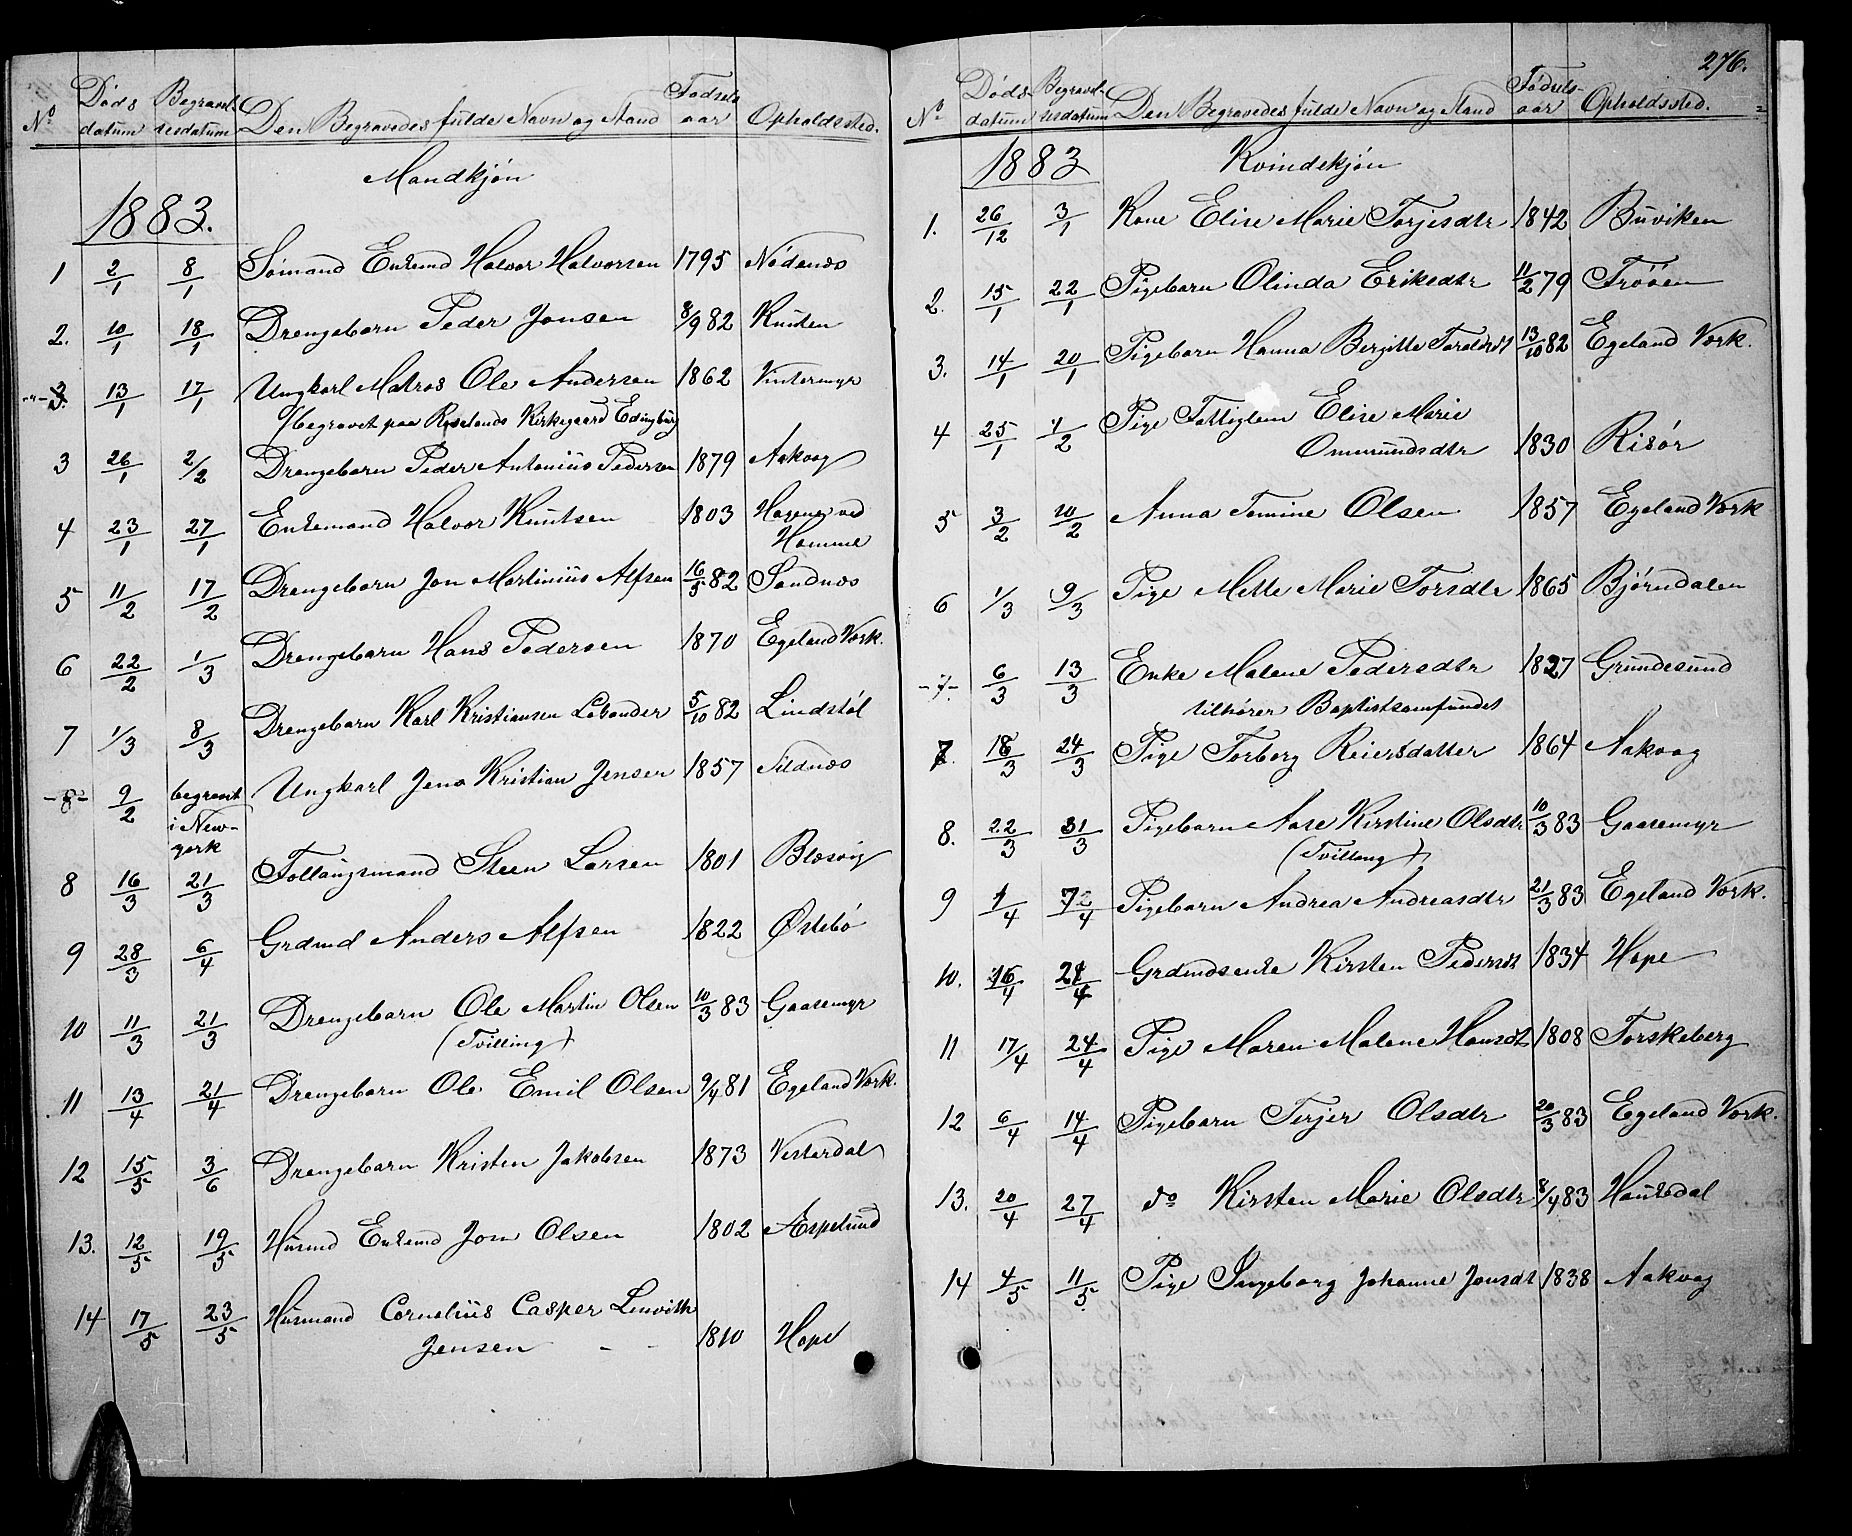 No Döds datum Begravelsesdatum Den Begravedes fulde Navn og Stand Födsels aar Opholdssted.
Mandkjön
1883.
1 2/1 8/1 Sömand Enkemd Halvor Halvorsen 1795 Nödenæs
2. 10/1 18/1 Drengebarn Peder Jonsen 8/9 82 Knuten
-"-3. 13/1 17/1 Ungkarl Matros Ole Andersen 1862 Vintermyr
(begravet paa Roselands Kirkegaard Edingburg
3 26/1 2/2 Drengebarn Peder Antonius Pedersen 1879 Aakvaag
4 23/1 27/1 Enkemand Halvor Knutsen 1803 Hagene ved
Homme
5 11/2 17/2 Drengebarn Jon Martinius Alfsen 16/5 82 Sandnæs
6 22/2 1/3 Drengebarn Hans Pedersen 1870 Egeland Værk.
7 1/3 8/3 Drengebarn Karl Kristiansen Lolander 5/10 82 Lindstöl
-8- 9/2 begravet Ungkarl Jens Kristian Jensen 1857 Sildnæs
i New-
york
8 16/3 21/3 Follaugsmand Steen Larsen 1801 Blæsvig
9 28/3 6/4 Grdmd Anders Alfsen 1822 Østebö
10 11/3 21/3 Drengebarn Ole Martin Olsen 10/3 83 Gaasemyr
(Tvilling)
11 13/4 21/4 Drengebarn Ole Emil Olsen 9/4 81 Egeland Værk.
12 15/5 3/6 Drengebarn Kristen Jakobsen 1873 Vesterdal
13. 12/5 19/5 Husmd Enkemd Jon Olsen 1802 Aspelund
14 17/5 23/5 Husmand Cornelius Casper Linvith
Jensen - - 1810 Hope
276.
No Döds- datum Begravelsesdatum Den Begravedes fulde Navn og Stand Födsels- aar Opholdssted.
1883 Kvindekjön
1. 26/12 3/1 Kone Elise Marie Torjesdtr 1842 Buviken
2. 15/1 22/1 Pigebarn Olinda Eriksdtr 11/2 79 Tröen
3. 14/1 20/1 Pigebarn Hanna Bergitte Taraldsdt 13/10 82 Egeland Værk.
4 25/1 1/2 Pige Fattiglem Elise Marie
Ommundsdtr 1830 Risör
5 3/2 10/2 Anna Tomine Olsen 1857 Egeland Værk
6 1/3 9/3 Pige Mette Marie Torsdtr 1865 Björndalen
-7- 6/3 13/3 Enke Malene Pedersdtr 1827 Grundesund
tilhörer Baptistsamfundet
7. 18/3 24/3 Pige Torborg Reiersdatter 1864 Aakvag
8. 22/3 31/3 Pigebarn Aase Kirstine Olsdtr 10/3 83 Gaasemyr
(Tvilling)
9 1/4 7/4 Pigebarn Andrea Andreasdtr 21/3 83 Egeland Værk.
10. 16/4 21/4 Grdmdsenke Kirsten Pedersdt 1834 Hope
11 17/4 24/4 Pige Maren Malene Hansdt 1808 Torskeberg
12 6/4 14/4 Pigebarn Terjer Olsdtr 20/3 83 Egeland Værk.
13. 20/4 27/4 do Kirsten Marie Olsdtr 8/4 83 Hauksdal
14 4/5 11/5 Pige Ingeborg Johanne Jonsdt 1838 Aakvag